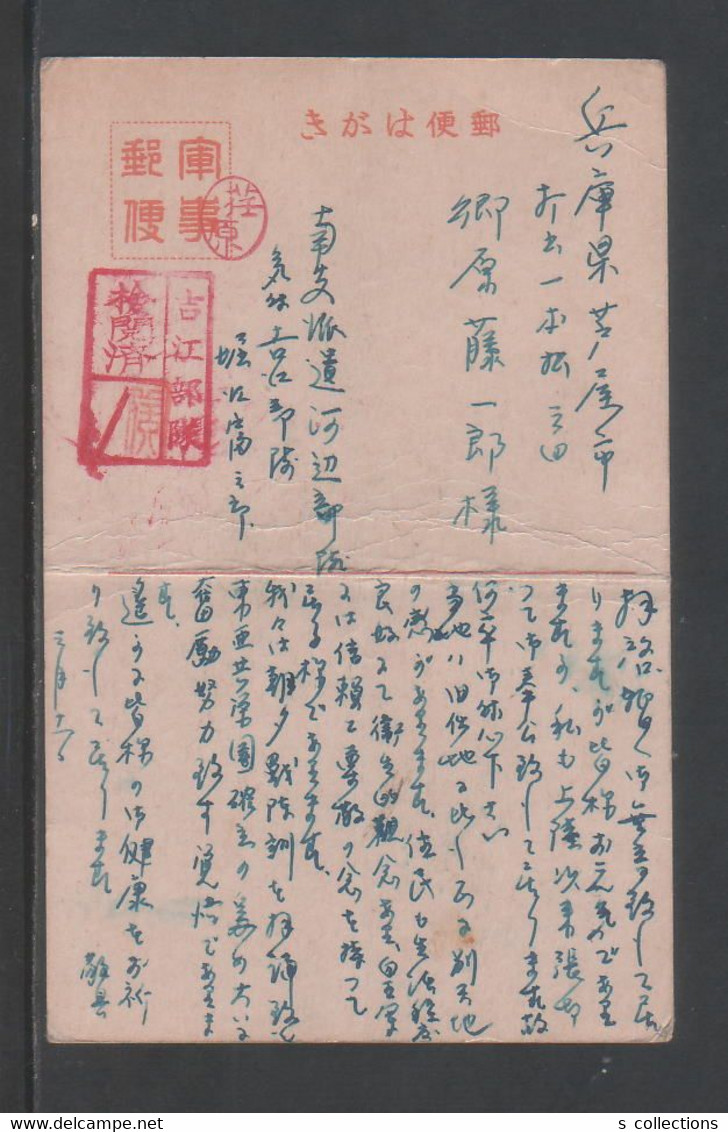 きがはし便郵
軍事
郵便
荘原
吉江部隊
検閲済
兵庫県芦屋市
打出一本松
郷原藤一郎様
南支派遣河辺部隊
気付吉江部隊
堀江富三郎
拝啓 御無音致して居
りますが皆様お元気であり
ますか、私も上陸以来張切
つて御奉公致して居ります故
何卒御休心下さい
当地は旧任地に比し 別天地
の感があります、住民も生活程度
良好にて衛生的観念あり皇軍
には信頼と尊敬の念を持つて
居る様であります。
我々は朝夕戦陣訓を拝誦致し
東亜共栄圏確立の為め大いに
奮励努力致す覚悟でありま
す。
遥かに皆様の御健康をお祈
り致して居ります
敬具
s collections